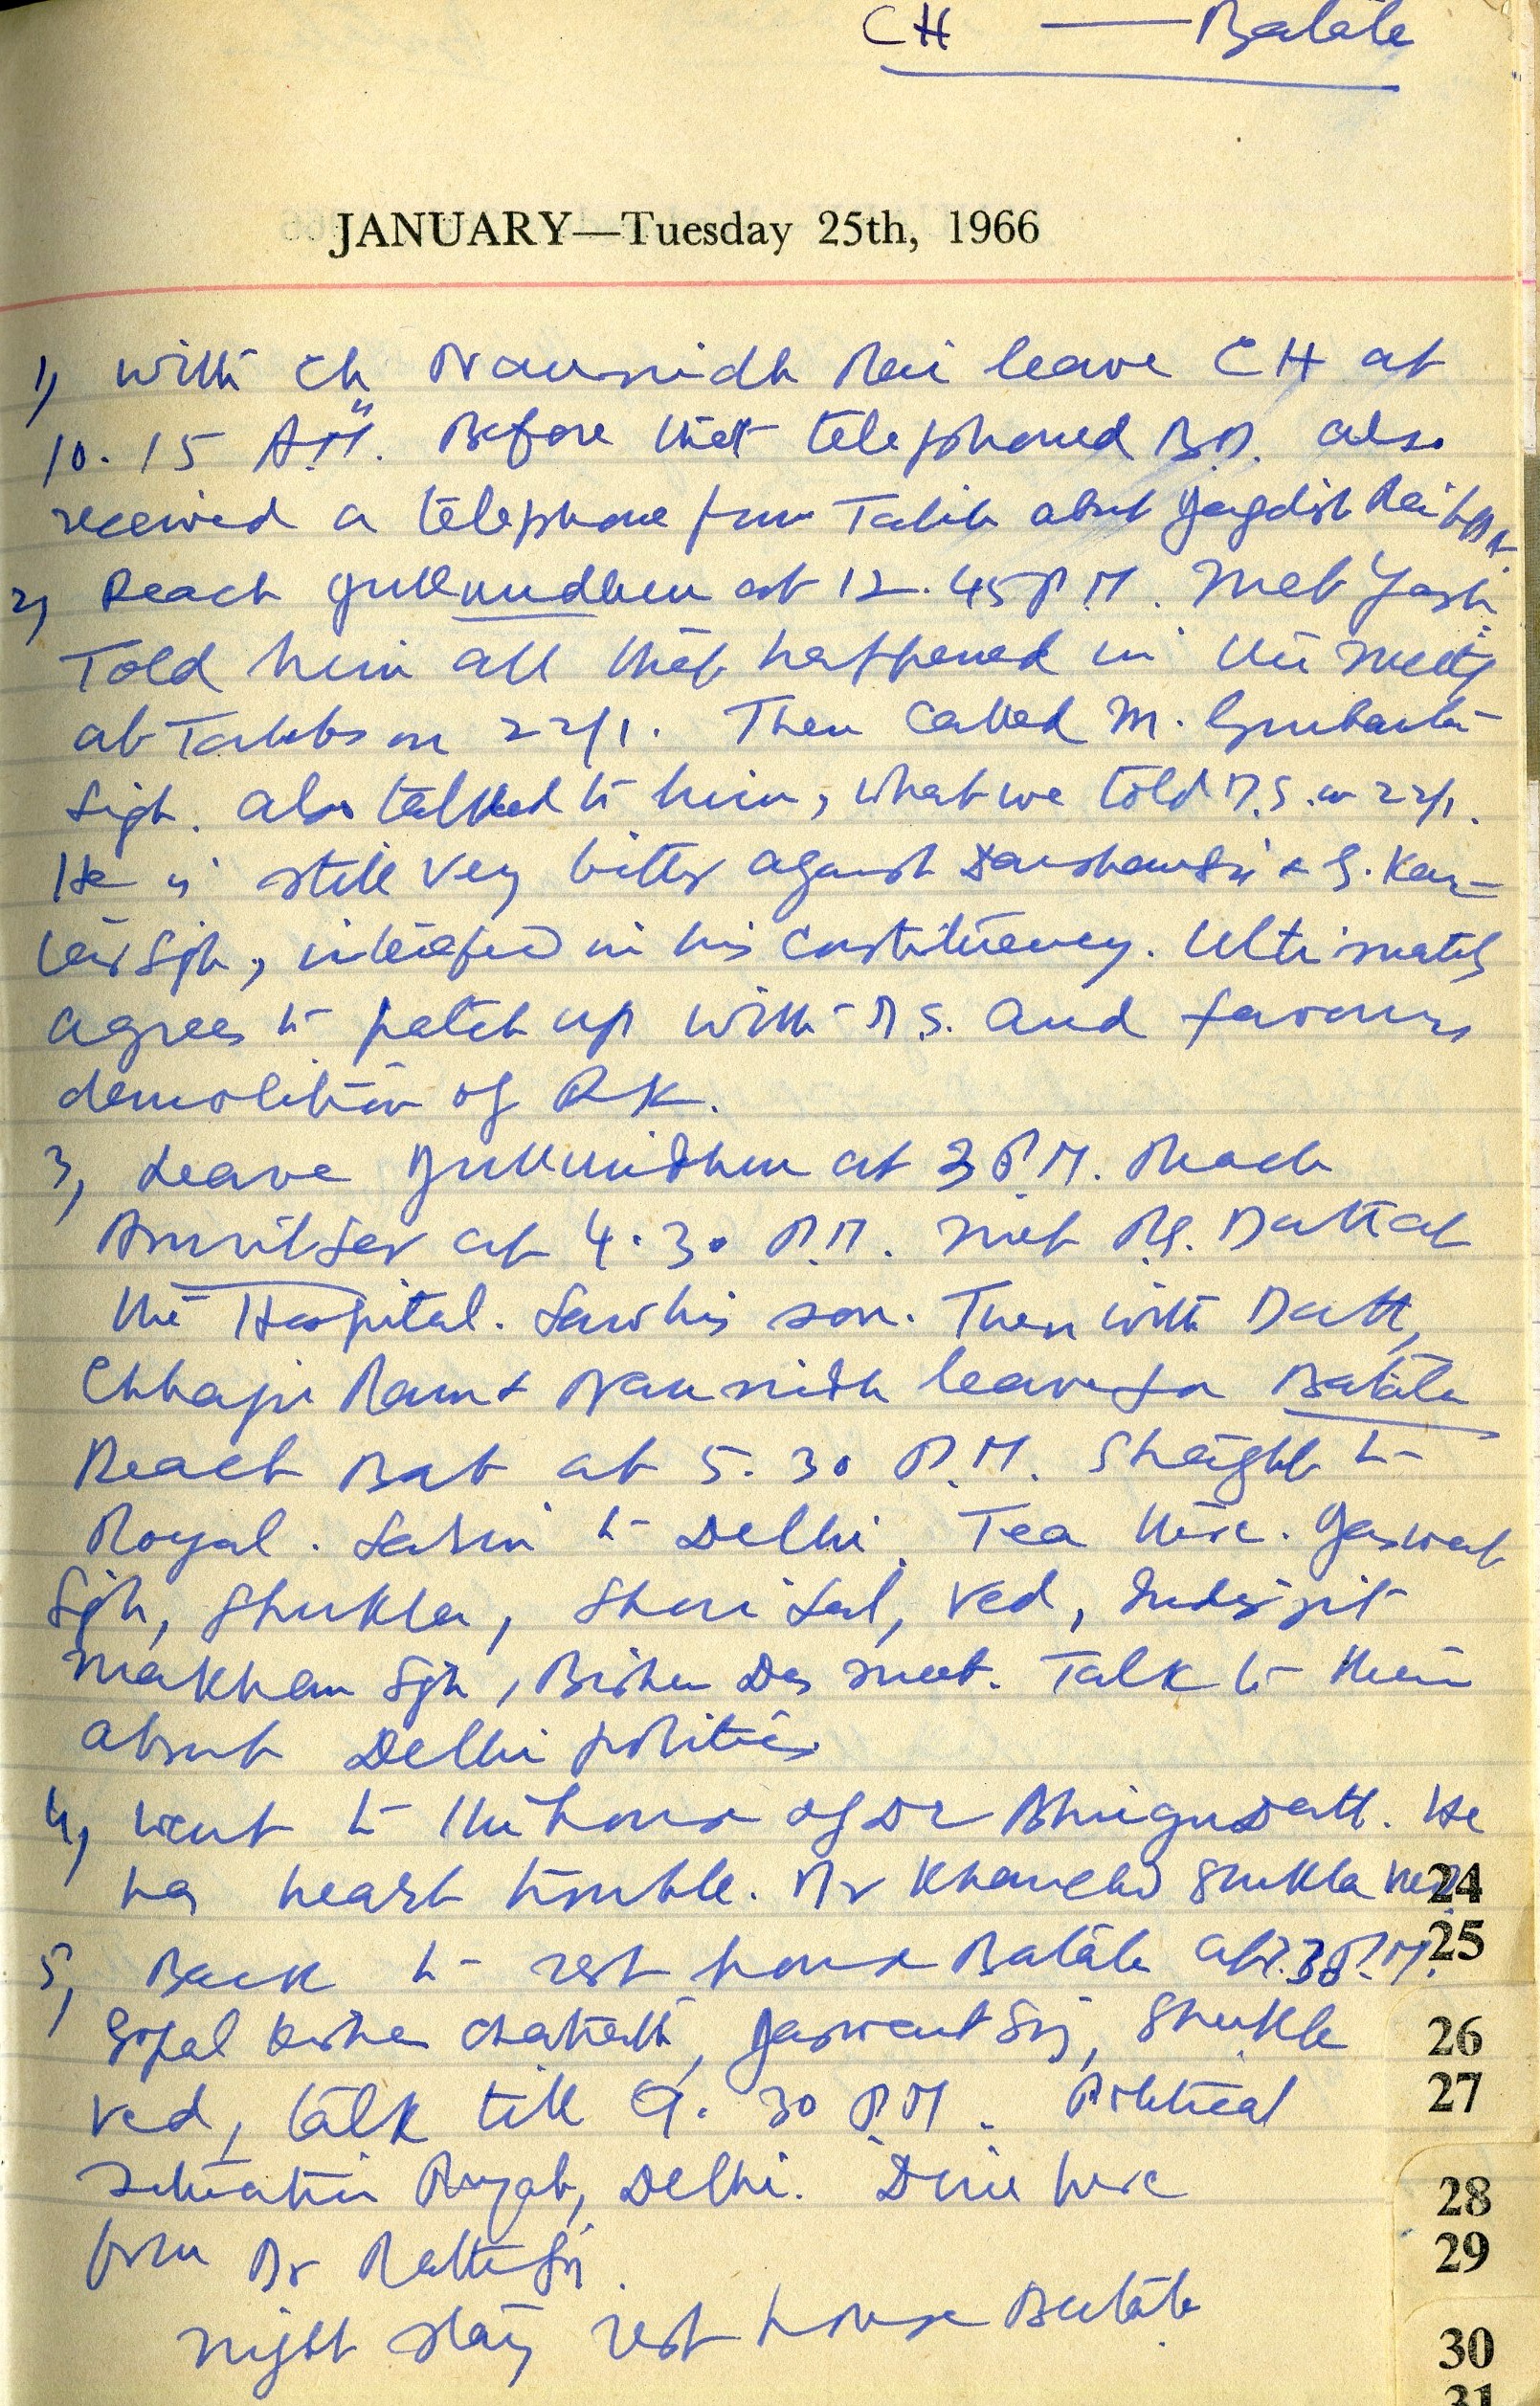 CH — Batala
JANUARY—Tuesday 25th, 1966
1) With Ch Naunnidh Rai leave CH at
10.15 A.M. Before that telephoned B.D. also
received a telephone from Talib about Jagdish Rai
2) Reach Jullundhur at 12.45 P.M. Met Yash.
Told him all that happened in the meeting
at Talib's on 22/1. Then called M. Gurbanta
Singh. Also talked to him, what we told D.S. on 22/1.
He is still very bitter against Darshan Singh & G. Kar-
tar Singh, in his constituency. Ultimately
agrees to patch up with D.S. and favours
demolition of RK.
3) Leave Jullundhur at 3 P.M. Reach
Amritsar at 4.30 P.M. Met Datt at
the Hospital. Saw his son. Then with Datt,
Chhaju Ram & Naunnidh leave for Batala
Reach Bat at 5.30 P.M. Straight to
Royal. to Delhi. Tea there. Jaswant
Sgh, Shukla, Shori Lal, Ved, Inderjit
Makhan Sgh, Bishen Das meet. Talk to them
about Delhi politics
4) Went to the house of Dr Bhrigu Datt. He
has heart trouble. Dr Shukla
24
5) Back to rest house Batala at 7.30 P.M.
25
Gopal Kishen Jaswant Sgh, Shukla
26
Ved, talk till 9.30 P.M. Political
27
situation Punjab, Delhi. Dine here
28
from Dr Rattan Sgh.
29
Night stay rest house Batala.
30
31